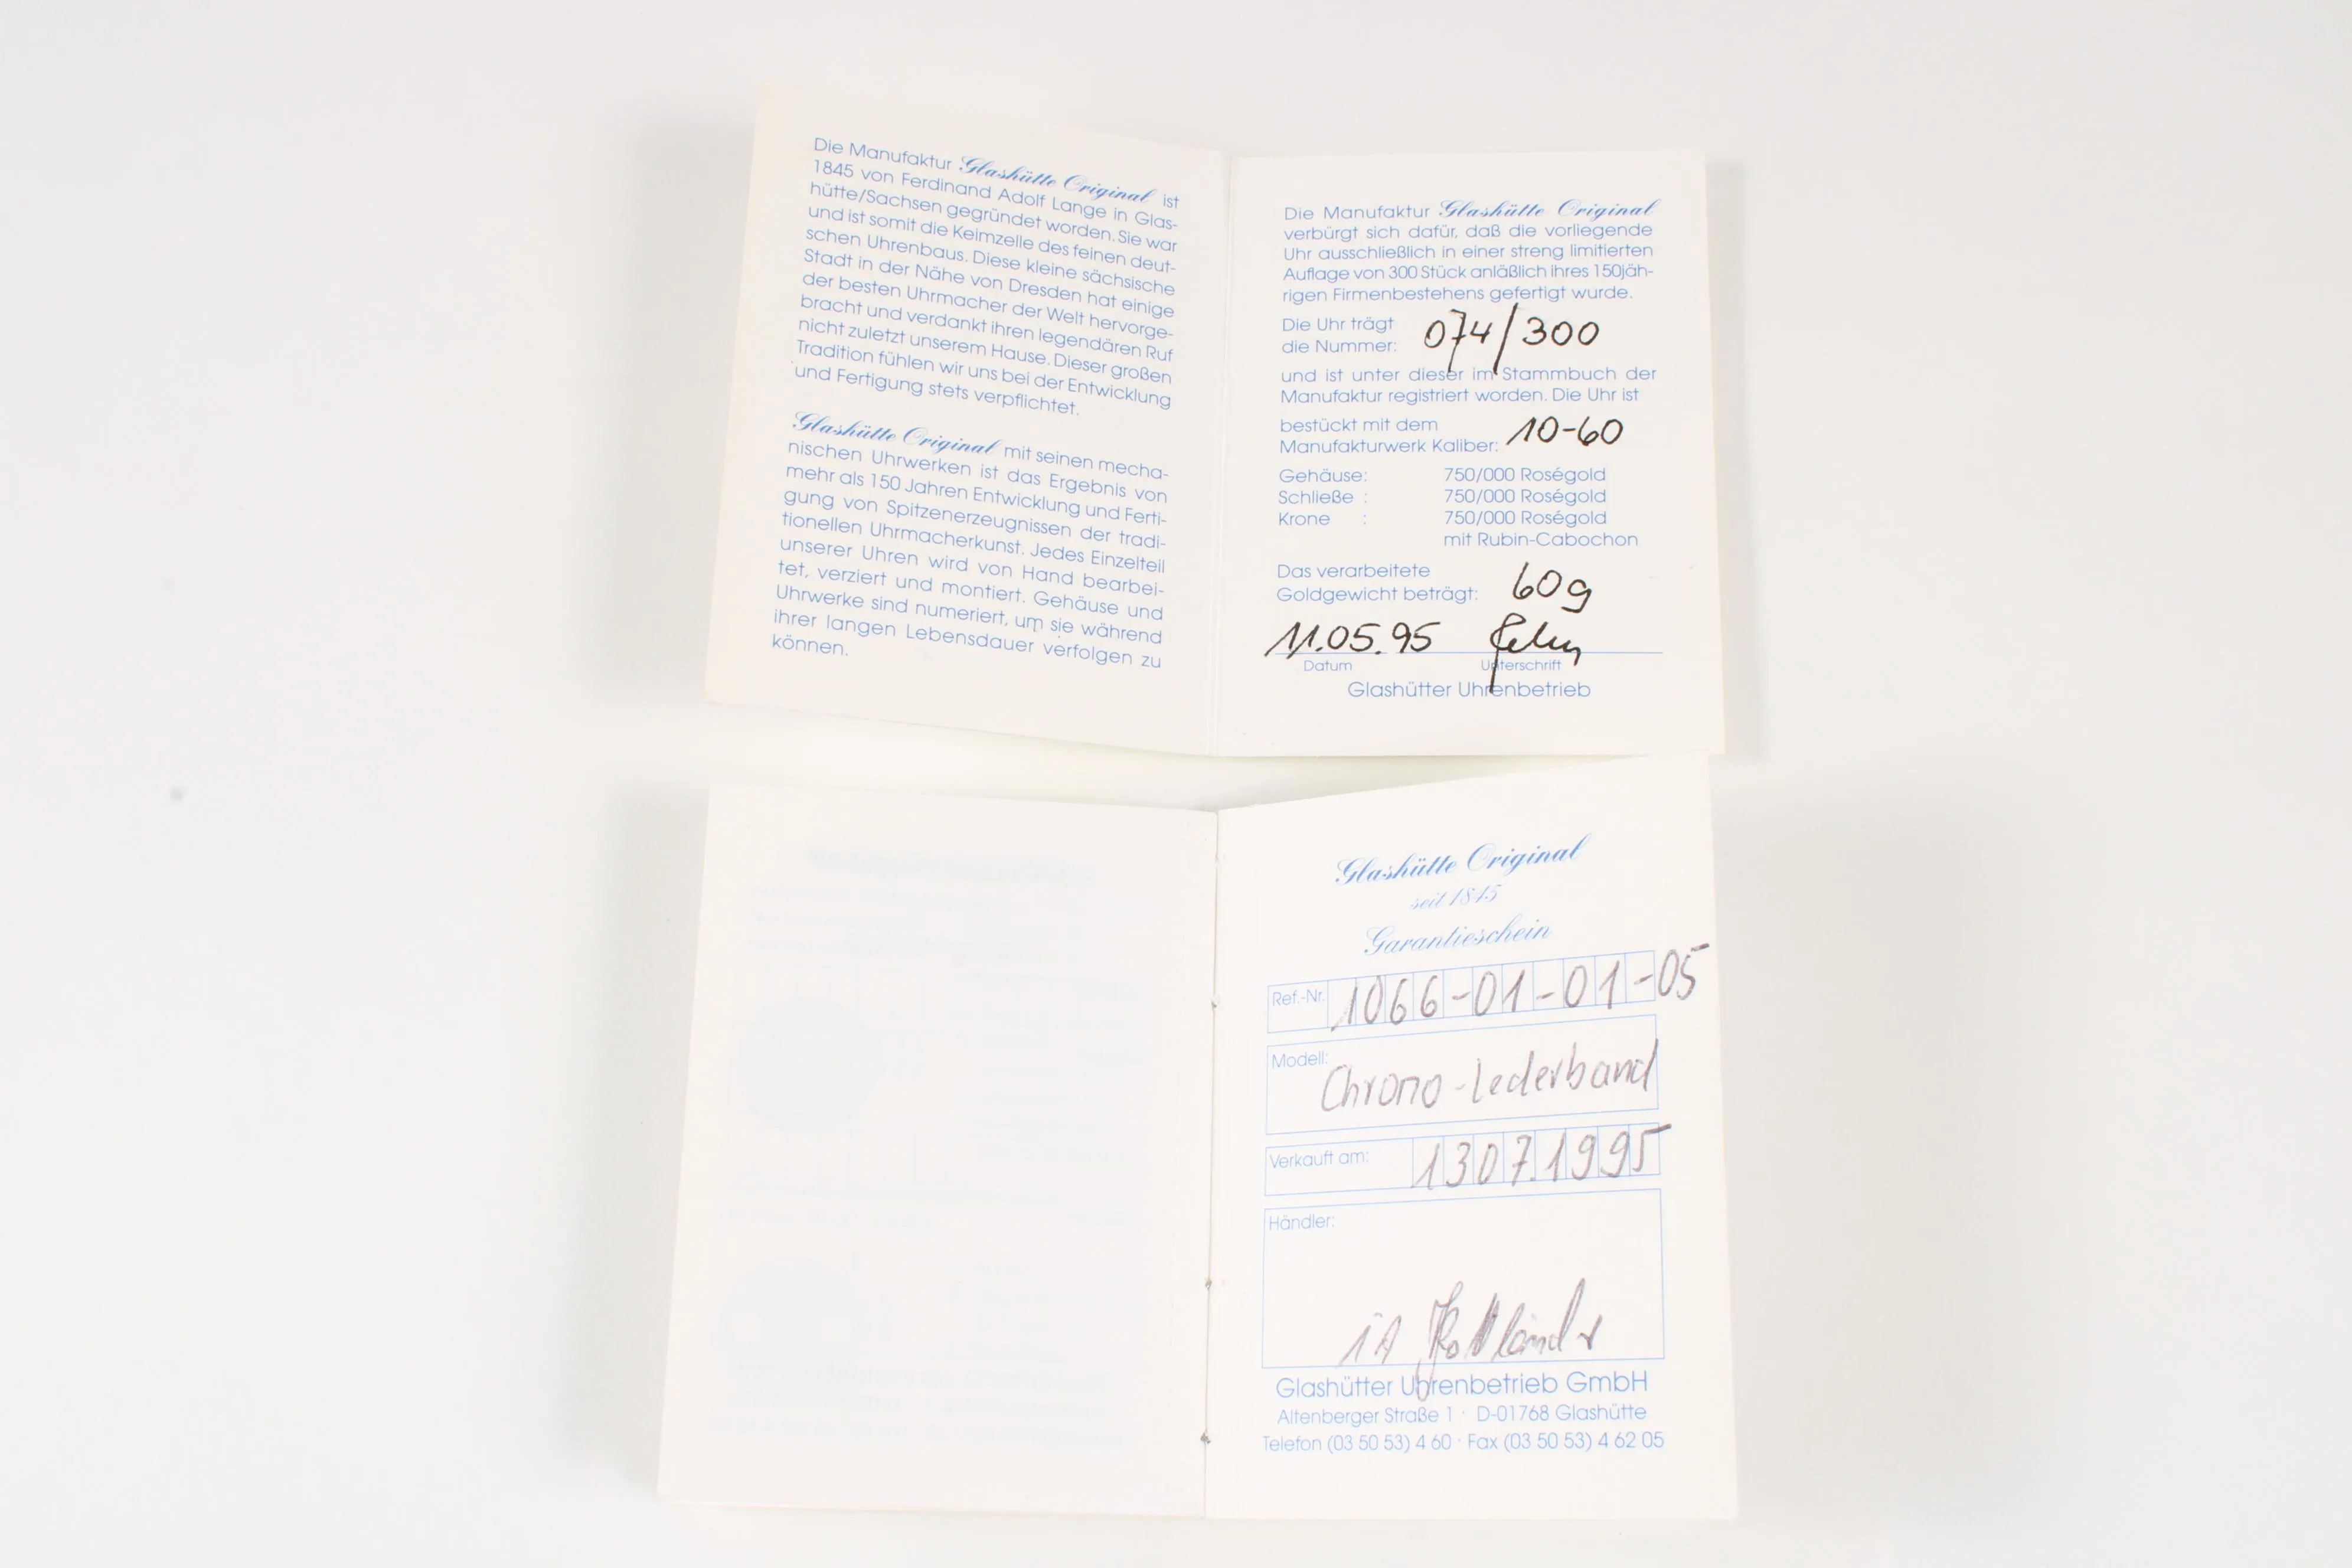 Die Manufaktur Glashütte Original ist
1845 von Ferdinand Adolf Lange in Glas-
hütte/Sachsen gegründet worden. Sie war
und ist somit die Keimzelle des feinen deut-
schen Uhrenbaus. Diese kleine sächsische
Stadt in der Nähe von Dresden hat einige
der besten Uhrmacher der Welt hervorge-
bracht und verdankt ihren legendären Ruf
nicht zuletzt unserem Hause. Dieser großen
Tradition fühlen wir uns bei der Entwicklung
und Fertigung stets verpflichtet.
Glashütte Original mit seinen mecha-
nischen Uhrwerken ist das Ergebnis von
mehr als 150 Jahren Entwicklung und Ferti-
gung von Spitzenerzeugnissen der tradi-
tionellen Uhrmacherkunst. Jedes Einzelteil
unserer Uhren wird von Hand bearbei-
tet, verziert und montiert. Gehäuse und
Uhrwerke sind numeriert, um sie während
ihrer langen Lebensdauer verfolgen zu
können.
Die Manufaktur Glashütte Original
verbürgt sich dafür, daß die vorliegende
Uhr ausschließlich in einer streng limitierten
Auflage von 300 Stück anläßlich ihres 150jäh-
rigen Firmenbestehens gefertigt wurde.
Die Uhr trägt
die Nummer: 074/300
und ist unter dieser im Stammbuch der
Manufaktur registriert worden. Die Uhr ist
bestückt mit dem
Manufakturwerk Kaliber: 10-60
Gehäuse: 750/000 Roségold
Schließe : 750/000 Roségold
Krone : 750/000 Roségold
mit Rubin-Cabochon
Das verarbeitete
Goldgewicht beträgt: 60g
11.05.95
Datum Unterschrift
Glashütter Uhrenbetrieb
Glashütte Original
seit 1845
Garantieschein
Ref.-Nr. 1066-01-01-05
Modell: Chrono-Lederband
Verkauft am: 1307.1995
Händler:
iA
Glashütter Uhrenbetrieb GmbH
Altenberger Straße 1 · D-01768 Glashütte
Telefon (03 50 53) 4 60 · Fax (03 50 53) 4 62 05